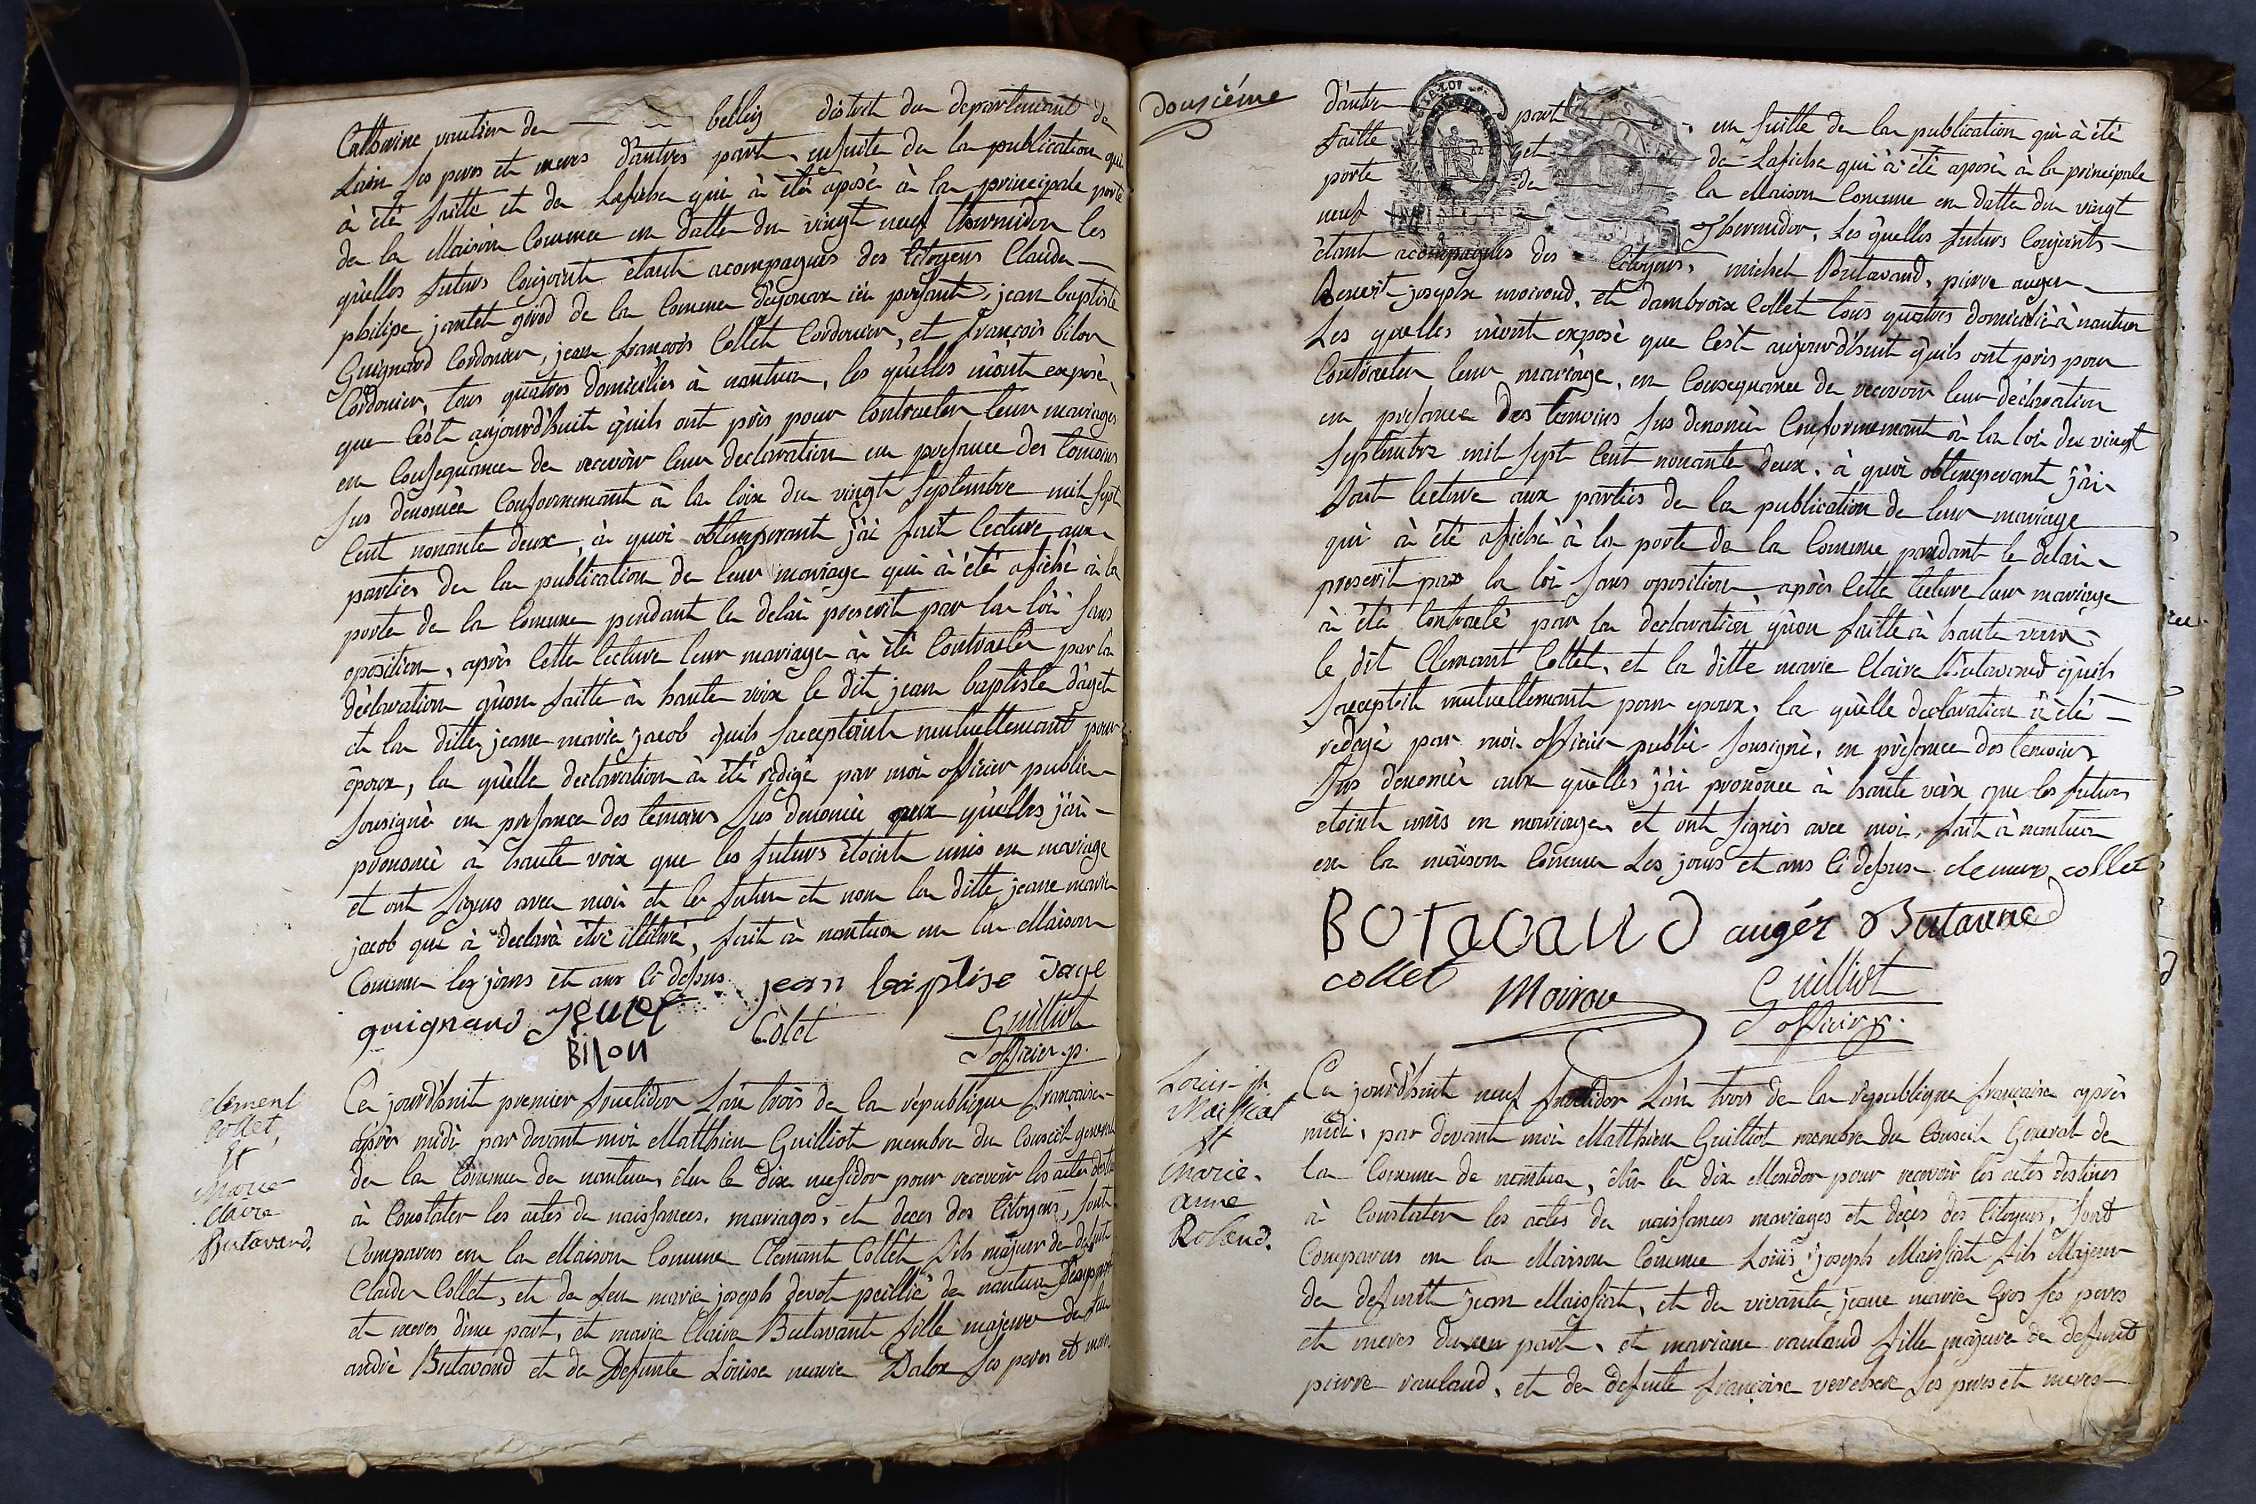 Catherine vautier de belley district du departement de
Lain ses peres et meres d'autres part, ensuite de la publication qui
à été faitte et de Lafiche qui à été aposé à la principale porte
de la Maison Comune en datte du vingt neuf thermidor les
quelles futurs Conjoint étant acompagnés des Citoyens Claude
philipe jantet girod de la Comune d'ajonax ici presant, jean baptiste
Guignard Cordonier, jean françois Collet Cordonier, et françois bilon
Cordonier, tous quatres domiciliés à nantua, les quelles m'ont exposé
que C'est aujourd'huit quils ont pris pour Contracter leur mariages
en Consequance de recevoir leur declaration en presance des temoins
sus denomé Conformemant à la loix du vingt Septembre mil sept
Cent nonante deux, à quoi obtemperant j'ai fait lecture aux
parties de la publication de leur mariage qui à été afiché à la
porte de la Comune pendant le delai prescrit par la loi sans
oposition, après Cette lecture leur mariage à été Contracté par la
déclaration qu'on faitte à haute voix le dit jean baptiste d'aget
et la ditte jeane marie jacob quils s'acceptoint mutuellemant pour
époux, la quelle declaration à été rédigé par moi officier public
sousigné en presance des temoins sus denomé aux quelles j'ai
prononcé à haute voix que les futurs étoint unis en mariage
et ont signés avec moi et le futur et non la ditte jeane marie
jacob qui à declaré étre illitéré, fait à nantua en la Maison
Comune les jours et ans ci dessus jean baptise dage
guignard Jentet Colet Guilliot
Bilon officier p.
Clément
Collet,
et
Marie
Claire
Butavand.
Ce jourd'huit premier fructidor L'an trois de la république françoise
après midi par devant moi Matthieu Guilliot membre du Conseil general
de la Comune de nantua, élu le dix mesidor pour recevoir les actes destinés
à Constater les actes de naissances, mariages, et deces des Citoyens, sont
Comparus en la Maison Comune Clemant Collet fils majeur de defunt
Claude Collet, et de feu marie joseph devot peillié de nantua ses peres
et meres d'une part, et marie Claire Butavant fille majeure de feu
andré Butavand et de Defunte Louise marie Dalox ses peres et mere
dousiéme
d'autre part en suitte de la publication qui à été
faitte et de Lafiche qui à été aposé à la principale
porte de la Maison Comune en datte du vingt
neuf Thermidor, Les quelles futurs Conjoints
étant acompagnés des Citoyens, michel Butavand, pierre auger
Benoit joseph moiroud, et dambroix Collet tous quatres domicilié à nantua
Les quelles m'ont exposé que C'est aujourd'huit quils ont pris pour
Contracter leur mariage, en Consequance de recevoir leur déclaration
en presance des temoins sus denomé Conformemant à la loi du vingt
septembre mil sept Cent nonante deux, à quoi obtemperant j'ai
fait lecture aux parties de la publication de leur mariage
qui à été afiché à la porte de la Comune pandant le delai
prescrit par la loi sans oposition, après Cette lecture leur mariage
à été Contracté par la declaration qu'on faitte à haute voix
le dit Clemant Collet, et la ditte marie Claire Butavand quils
s'acceptoit mutuellemant pour epoux, la quelle declaration à été
redigé par moi officier public sousigné, en présance des temoins
sus denomé aux quelles j'ai prononce à haute voix que les futurs
etoint unis en mariages et ont signés avec moi, fait à nantua
en la maison Comune Les jours et ans ci dessus clemen collet
BOTAVAND augér Butavand
collet Moirou Guilliot
officier p.
Louis jh
Maissiat
et
Marie-
anne
Roland.
Ce jourd'huit neuf fructidor L'an trois de la république françaisse après
midi, par devant moi Matthieu Guilliot membre du Conseil General de
la Comune de nantua, élu le dix Messidor pour recevoir les actes destinés
à Constater les actes de naissances mariages et décès des Citoyens, sont
Comparus en la Maison Comune Louis joseph Maissiat fils Majeur
de defunt jean Maissiat, et de vivante jeane marie Gros ses peres
et meres d'une part, et mariane rauland fille majeure de defunt
pierre rauland, et de defunte françoise ses peres et meres